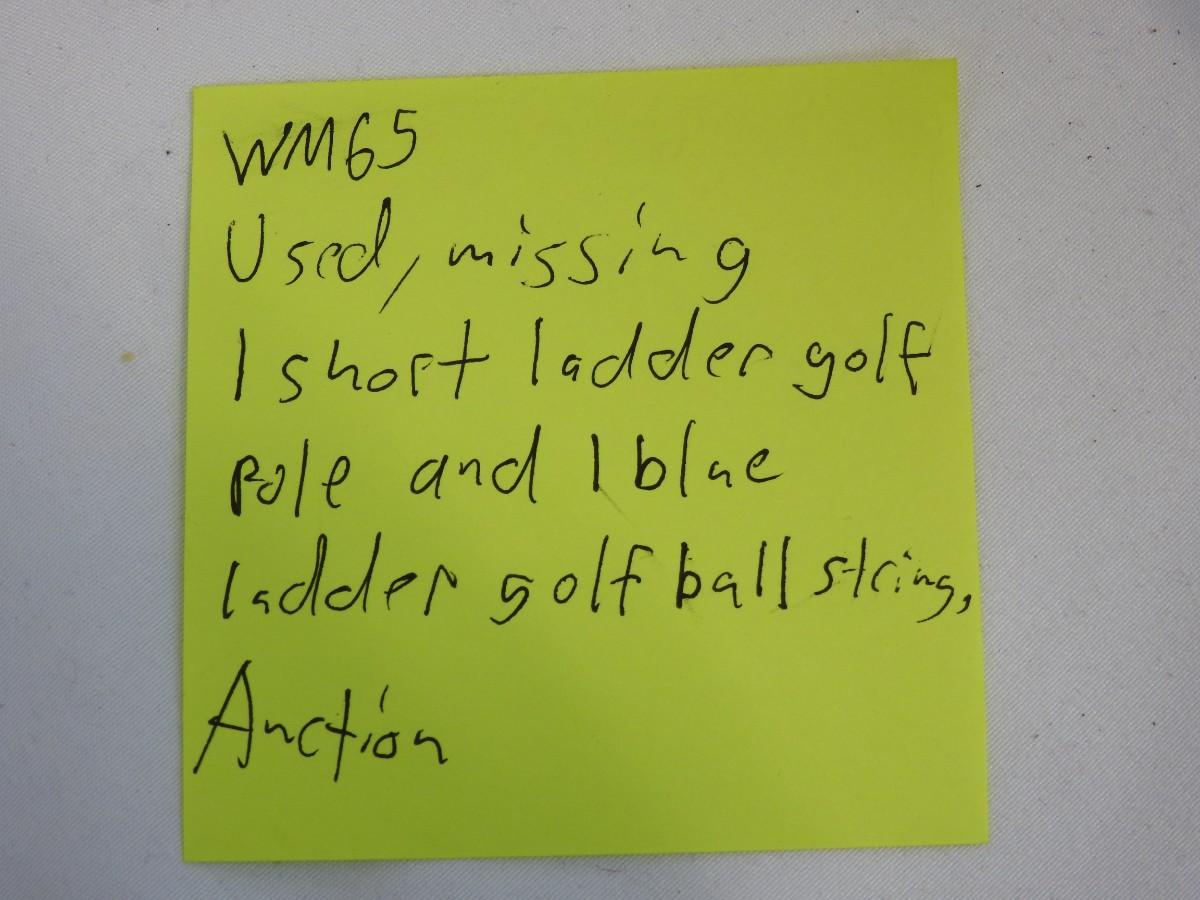 WM65
Used, missing
1 short ladder golf
pole and 1 blue
ladder golf ball string,
Auction